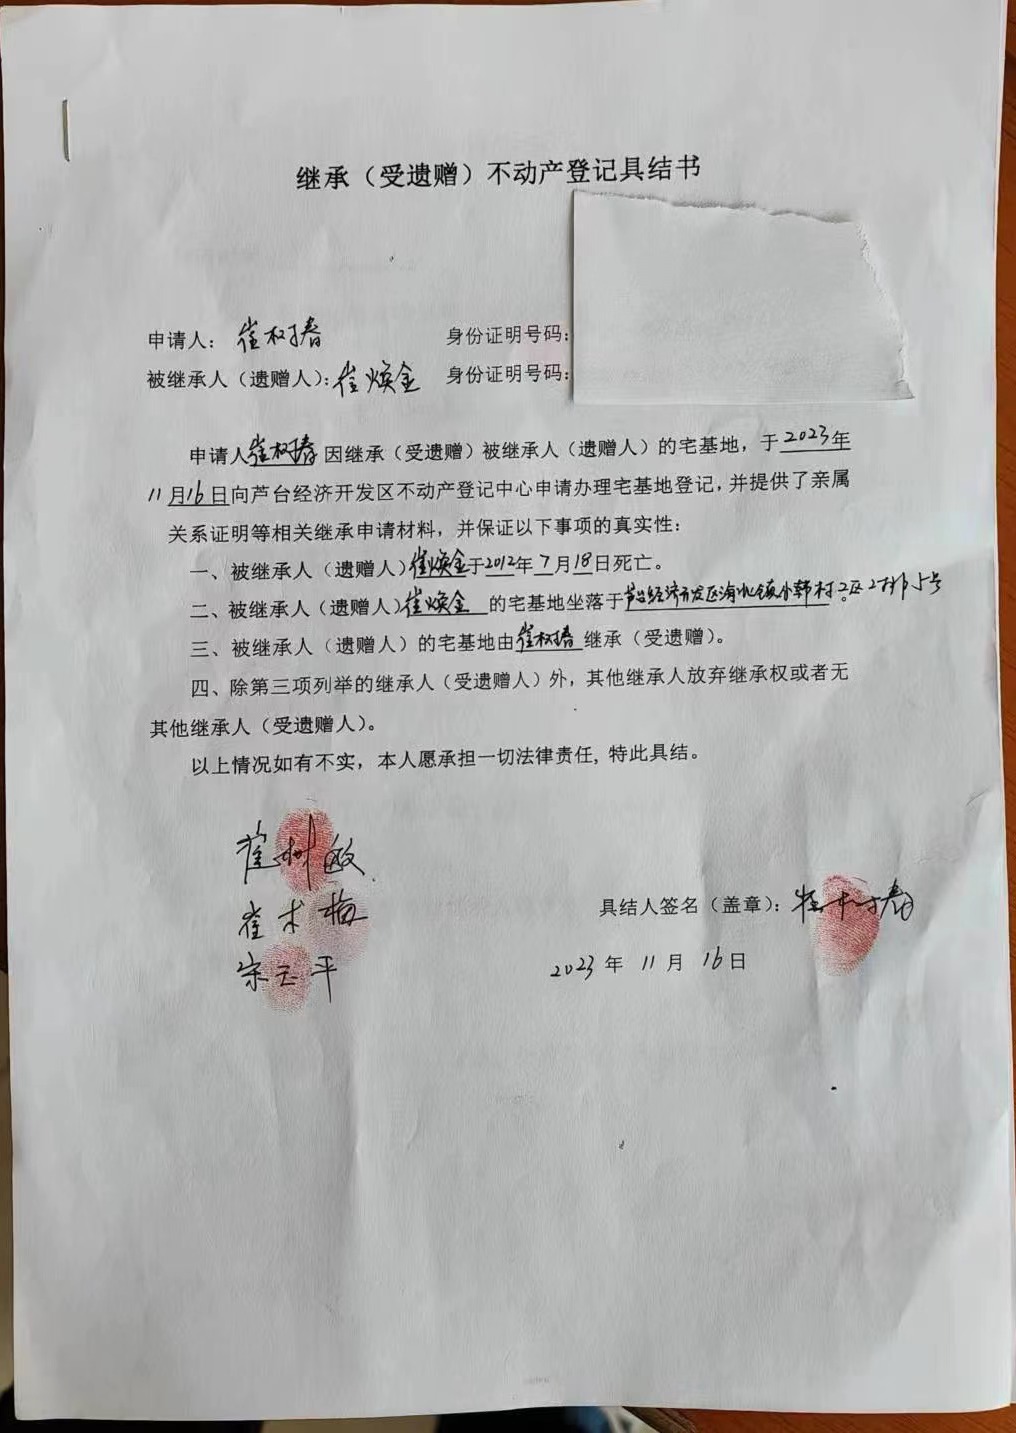 继承（受遗赠）不动产登记具结书
申请人：崔树春 身份证明号码：
被继承人（遗赠人）：崔焕金 身份证明号码：
申请人崔树春因继承（受遗赠）被继承人（遗赠人）的宅基地，于2023年
11月16日向芦台经济开发区不动产登记中心申请办理宅基地登记，并提供了亲属
关系证明等相关继承申请材料，并保证以下事项的真实性：
一、被继承人（遗赠人）崔焕金于2012年7月18日死亡。
二、被继承人（遗赠人）崔焕金的宅基地坐落于芦台经济开发区海北镇小韩村2区2排5号
三、被继承人（遗赠人）的宅基地由崔树春继承（受遗赠）。
四、除第三项列举的继承人（受遗赠人）外，其他继承人放弃继承权或者无
其他继承人（受遗赠人）。
以上情况如有不实，本人愿承担一切法律责任，特此具结。
崔树敏
崔术梅 具结人签名（盖章）：崔树春
宋玉平 2023年11月16日